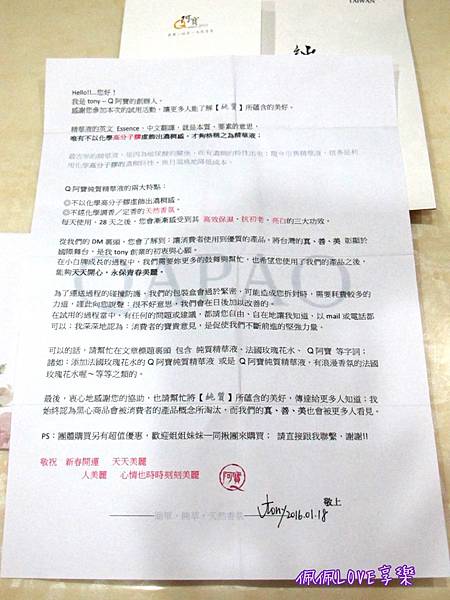 TAIWAN
Q阿寶
純
Hello!!...您好！
我是 tony – Q 阿寶的創辦人。
感謝您參加本次的試用活動，讓更多人能了解【純質】所蘊含的美好。
精華液的英文 Essence，中文翻譯，就是本質、要素的意思，
唯有不以化學高分子膠虛創出濃稠感，才夠格稱之為精華液；
Q 阿寶純質精華液的兩大特點：
◎不以化學高分子膠虛創出濃稠感。
◎不經化學調香／定香的天然香氛。
每天使用、28 天之後，您會漸漸感受到其 高效保濕、抗初老、亮白的三大功效。
從我們的 DM 裏頭，您會了解到：讓消費者使用到優質的產品，將台灣的真、善、美 彰顯於
國際舞台，是我 tony 創業的初衷與心願。
在小白牌成長的過程中，我們需要妳更多的鼓舞與幫忙，也希望您使用了我們的產品之後，
能夠天天開心，永保青春美麗。
為了運送過程的碰撞防護，我們的包裝盒會過於緊密，可能造成您拆封時，需要耗費較多的
力道，謹此向您說聲：很不好意思，我們會在日後加以改善的。
在試用的過程當中，有任何的問題或建議，都請您自由、自在地讓我知道，以 mail 或電話都
可以；我深深地認為：消費者的寶貴意見，是促使我們不斷前進的堅強力量。
可以的話，請幫忙在文章標題裏頭 包含 純質精華液、法國玫瑰花水、 Q 阿寶 等字詞；
諸如：添加法國玫瑰花水的 Q 阿寶純質精華液 或是 Q 阿寶純質精華液，有浪漫香氛的法國
玫瑰花水喔～等等之類的。
最後，衷心地感謝您的協助，也請幫忙將【純質】所蘊含的美好，傳達給更多人知道；我
始終認為黑心商品會被消費者的產品概念所淘汰，而我們的真、善、美也會被更多人看見。
PS：團體購買另有超值優惠，歡迎姐姐妹妹一同揪團來購買； 請直接跟我聯繫，謝謝!!
敬祝 新春開運 天天美麗
人美麗 心情也時時刻刻美麗
阿寶
tony 2016.01.18 敬上
佩佩LOVE享樂